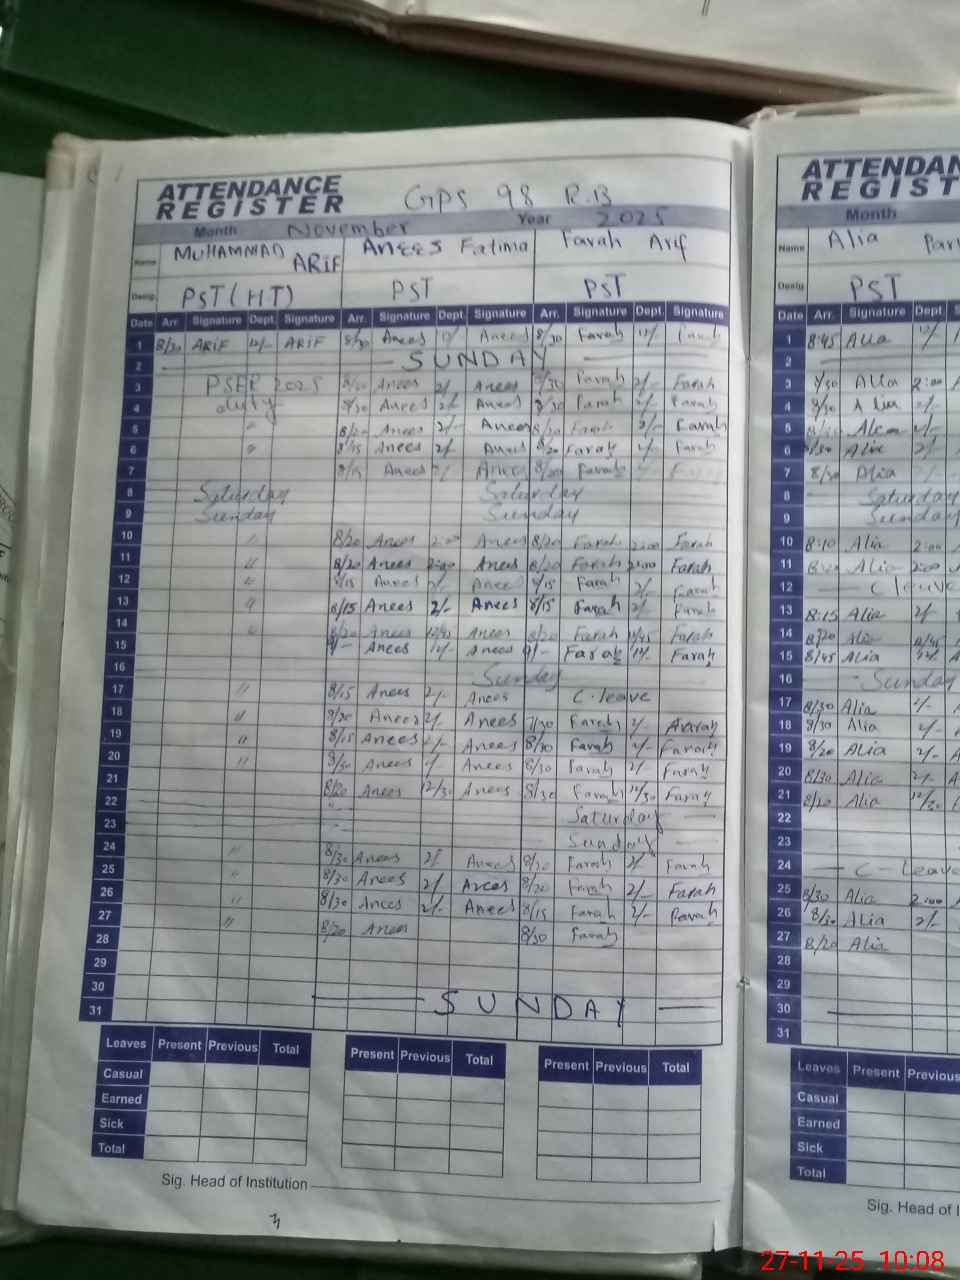 ATTENDANCE REGISTER GPS 98 R.B
Month November Year 2025
Name MUHAMMAD ARIF Anees Fatima Farah Arif
Desig. PST (HT) PST PST
Date Arr. Signature Dept. Signature Arr. Signature Dept. Signature Arr. Signature Dept. Signature
1 8/30 ARIF 12/- ARIF 8/30 Anees 12/- Anees 8/30 Farah 12/- Farah
2 SUNDAY
3 2025 Anees 2/- Anees Farah 2/- Farah
4 duty Anees 2/- Anees Farah 2/- Farah
5 " 8/20 Anees 2/- Anees 8/20 Farah 2/- Farah
6 " 8/15 Anees 2/- Anees 8/20 Farah 2/- Farah
7 8/15 Anees Anees 8/20 Farah
8 Saturday Saturday
9 Sunday Sunday
10 " 8/20 Anees 2:00 Anees 8/20 Farah 2:00 Farah
11 " 8/20 Anees 2:00 Anees 8/20 Farah 2:00 Farah
12 " 8/15 Anees 2/- Anees 8/15 Farah 2/- Farah
13 " 8/15 Anees 2/- Anees 8/15 Farah 2/- Farah
14 " 8/20 Anees 12/45 Anees 8/20 Farah 12/45 Farah
15 9/- Anees 12/- Anees 9/- Farah 12/- Farah
16 Sunday
17 " 8/15 Anees 2/- Anees C. leave
18 " 8/20 Anees 2/- Anees Farah 2/- Farah
19 " 8/15 Anees 2/- Anees 8/30 Farah 2/- Farah
20 " Anees 2/- Anees 8/30 Farah 2/- Farah
21 8/20 Anees 12/30 Anees 8/30 Farah 12/30 Farah
22 Saturday
23 Sunday
24 " 8/30 Anees 2/- Anees Farah 2/- Farah
25 " 8/30 Anees 2/- Anees 8/20 Farah 2/- Farah
26 " 8/30 Anees 2/- Anees 8/15 Farah 2/- Farah
27 " 8/20 Anees 8/30 Farah
28
29
30 SUNDAY
31
Leaves Present Previous Total Present Previous Total Present Previous Total
Casual
Earned
Sick
Total
Sig. Head of Institution
ATTENDAN
REGIST
Month
Name Alia
Desig. PST
Date Arr. Signature Dept.
1 8:45 Alia 12/-
2
3 Alia 2:00
4 Alia 2/-
5 Alia 2/-
6 Alia 2/-
7 8/30 Alia
8 Saturday
9 Sunday
10 8:10 Alia 2:00
11 Alia 2:00
12 C leave
13 8:15 Alia 2/-
14 8/20 Alia 12/45
15 8/45 Alia 12/-
16 Sunday
17 8/30 Alia 2/-
18 8/30 Alia 2/-
19 8/20 Alia 2/-
20 8/30 Alia 2/-
21 8/20 Alia 12/30
22
23
24 C - Leave
25 8/30 Alia 2:00
26 8/30 Alia 2/-
27 8/20 Alia
28
29
30
31
Leaves Present Previous
Casual
Earned
Sick
Total
Sig. Head of
27-11-25 10:08